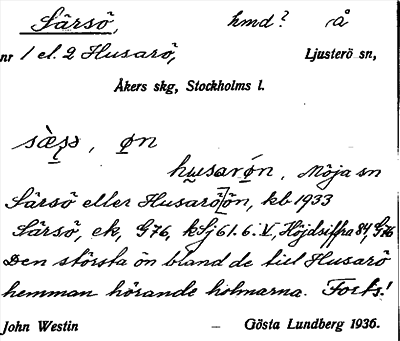 Särsö, hmd? Å
nr 1 el. 2 Husarö, Ljusterö sn,
Åkers skg, Stockholms l.
øn
husarøn, Möja sn
Särsö eller Husaröön, kb 1933
Särsö, ek, G76, kSj 61.6.V, Höjdsiffra 84, G76
Den största ön bland de till Husarö
hemman hörande holmarna. Forts!
John Westin – Gösta Lundberg 1936.